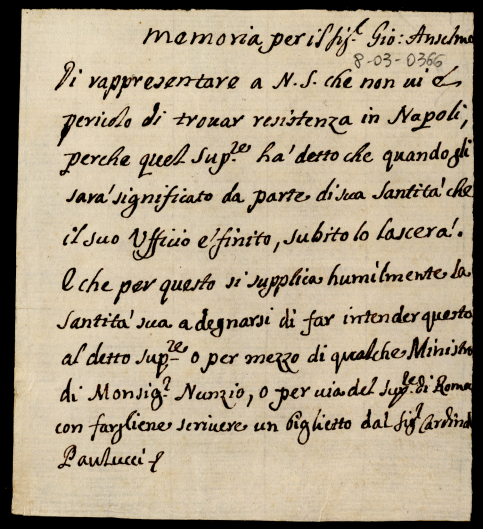 Memoria per il Sig.r Gio: Anselmo
8-03-0366
Di rappresentare a N.S. che non ui è
pericolo di trouar resistenza in Napoli,
perche quel Sup.re ha' detto che quando gli
sara' significato da parte di sua Santita' che
il suo Ufficio e' finito, subito lo lascera'.
E che per questo si supplica humilmente la
Santita' sua a degnarsi di far intender questo
al detto Sup.re o per mezzo di qualche Ministro
di Monsig.r Nunzio, o per uia del Sup.re di Roma
con fargliene scriuere un biglietto dal Sig.r Cardinal
Paulucci